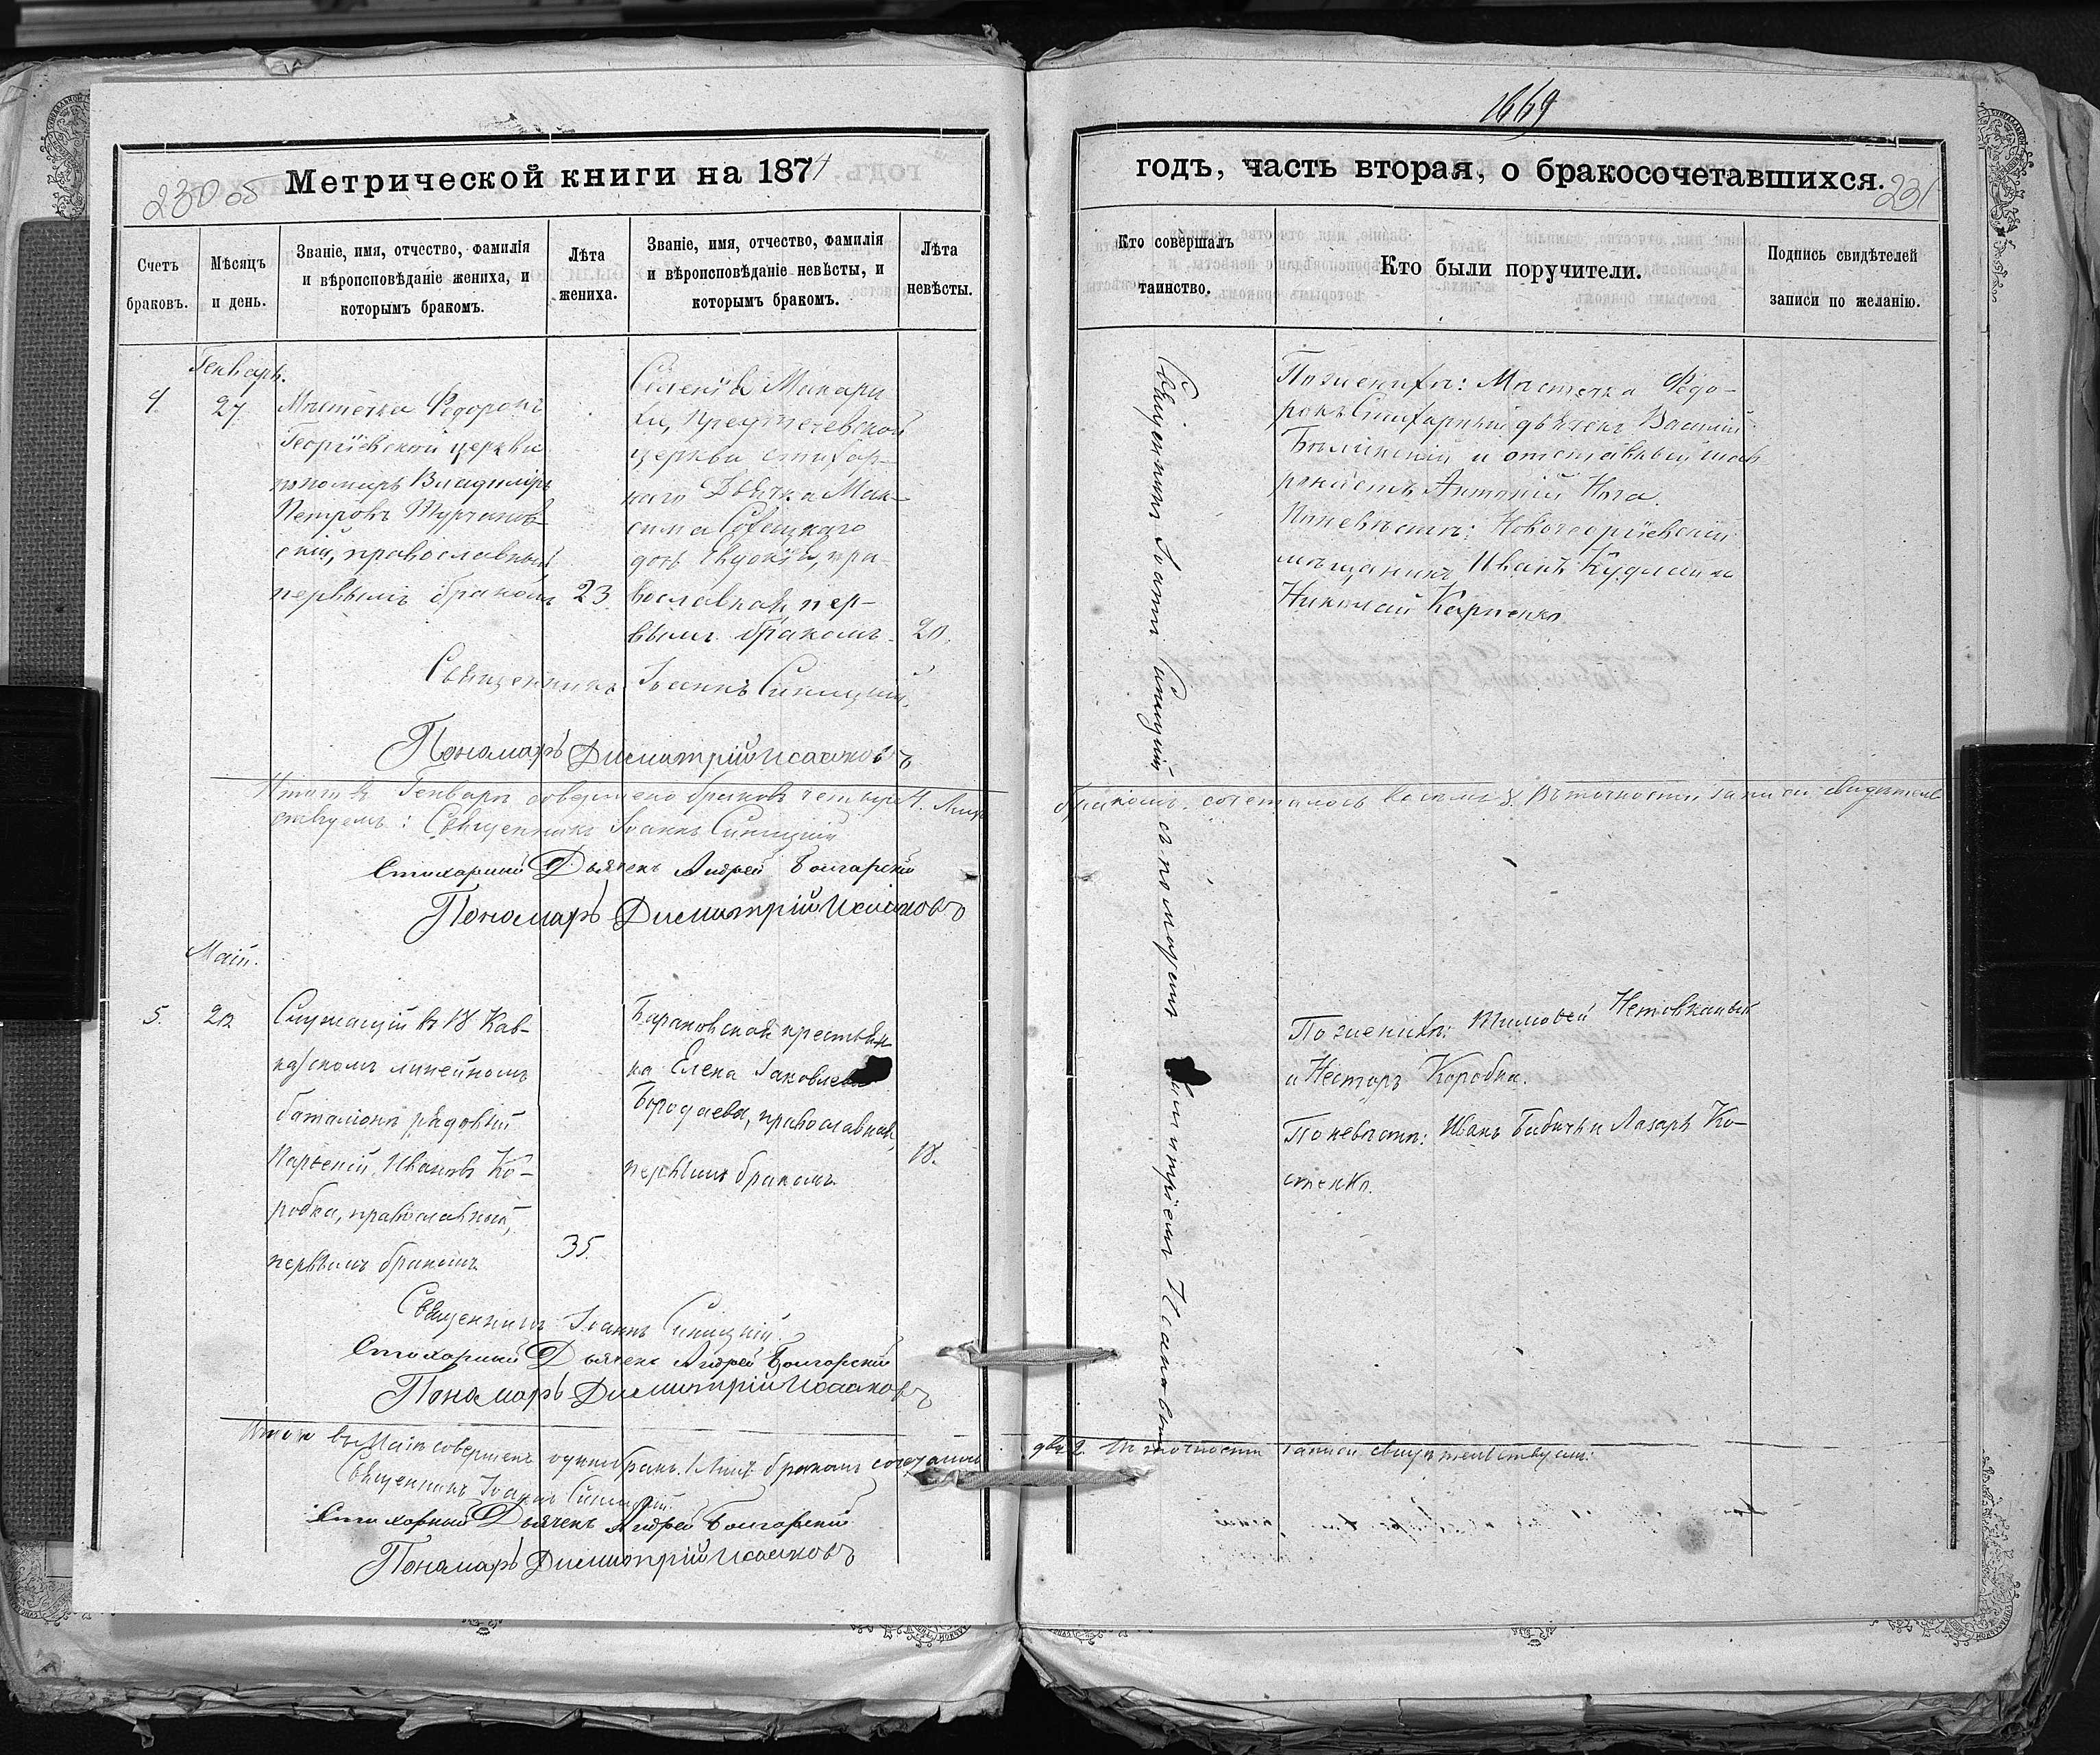 1669
230 об
Метрической книги на 1874
годъ, часть вторая, о бракосочетавшихся.
231
Счетъ браковъ.
Мѣсяцъ и день.
Званіе, имя, отчество, фамилія
и вѣроисповѣданіе жениха, и
которымъ бракомъ.
Лѣта
жениха.
Званіе, имя, отчество, фамилія
и вѣроисповѣданіе невѣсты, и
которымъ бракомъ.
Лѣта
невѣсты.
Кто совершалъ
таинство.
Кто были поручители.
Подпись свидѣтелей
записи по желанію.
Генварь.
4.
27
Мѣстечка Федорокъ
Георгіевской церкви
пономарь Владиміръ
Петровъ Турчанов-
скій, православный
первымъ бракомъ
23.
Селенія Макари
хи, Предтечевской
церкви стихар-
наго Дьячка Мак-
сима
дочь Евдокія, пра-
вославная пер-
вымъ бракомъ.
20.
Священникъ Іоаннъ Синицкій.
Пономарь Димитрій Исааковъ
Итого въ Генварѣ совершено браковъ четыре 4. Лицъ
бракомъ сочеталось восемь 8. Въ точности записи свидѣтель
ствуемъ: Священникъ Іоаннъ Синицкій
Стихарный Дьячекъ Андрей Болгарскій
Пономарь Димитрій Исааковъ
Май.
5.
Служащій въ 18 Кав-
казскомъ линейномъ
баталіонѣ рядовый
Парѳеній Ивановъ Ко-
робка, православный,
первымъ бракомъ
35.
крестьян-
ка Елена Іаковлева
Бородаева, православная,
первымъ бракомъ
18.
Священникъ Іоаннъ Синицкій.
Стихарный Дьячекъ Андрей Болгарскій
Пономарь Димитрій Исааковъ
Итого въ Маѣ совершенъ одинъ бракъ. 1 Лицъ бракомъ сочеталось
два 2. Въ точности записи свидѣтельствуемъ:
Священникъ Іоаннъ Синицкій.
Стихарный Дьячекъ Андрей Болгарскій
Пономарь Димитрій Исааковъ
Священникъ Іоаннъ Синицкій съ пономаремъ Димитріемъ Исааковымъ
По женихѣ: Мѣстечка Федо-
рокъ Стихарный дьячекъ Василій
и отставный
Антоній Нога.
По невѣстѣ: Новогеоргіевскій
мѣщанинъ Иванъ
Николай Карпенко
По женихѣ: Тимоѳей
и Несторъ Коробка.
По невѣстѣ: Иванъ Бабичъ и Лазарь Ко-
стенко.